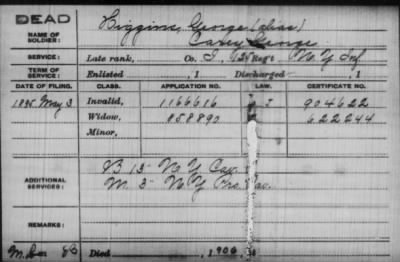 DEAD
Higgins, George (alias)
NAME OF SOLDIER: Carey George
SERVICE: Late rank, Co. I, 62 Reg't N.Y. Inf
TERM OF SERVICE: Enlisted , 1 Discharged , 1
DATE OF FILING. CLASS. APPLICATION NO. LAW. CERTIFICATE NO.
1895 May 3 Invalid, 1166616 904622
Widow, 858890 622244
Minor,
ADDITIONAL SERVICES: B 15 N.Y. Cav.
M. 3 N.Y. Pro. Cav.
REMARKS:
Died , 1906,